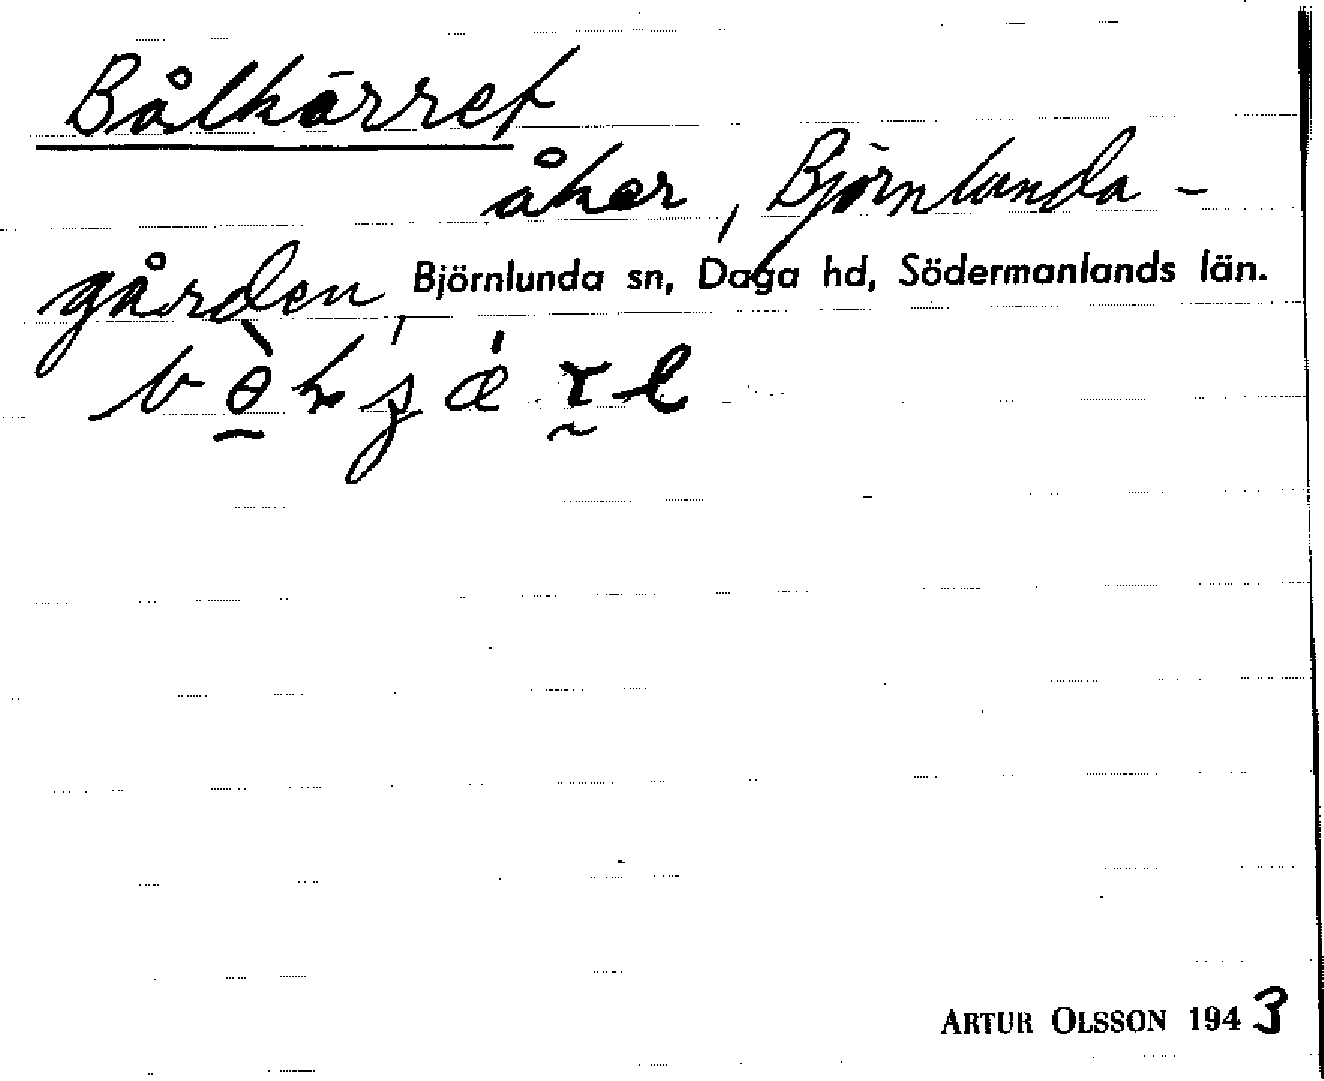 Bålkärret
åker, Björnlunda-
gården, Björnlunda sn, Daga hd, Södermanlands län.
ARTUR OLSSON 1943